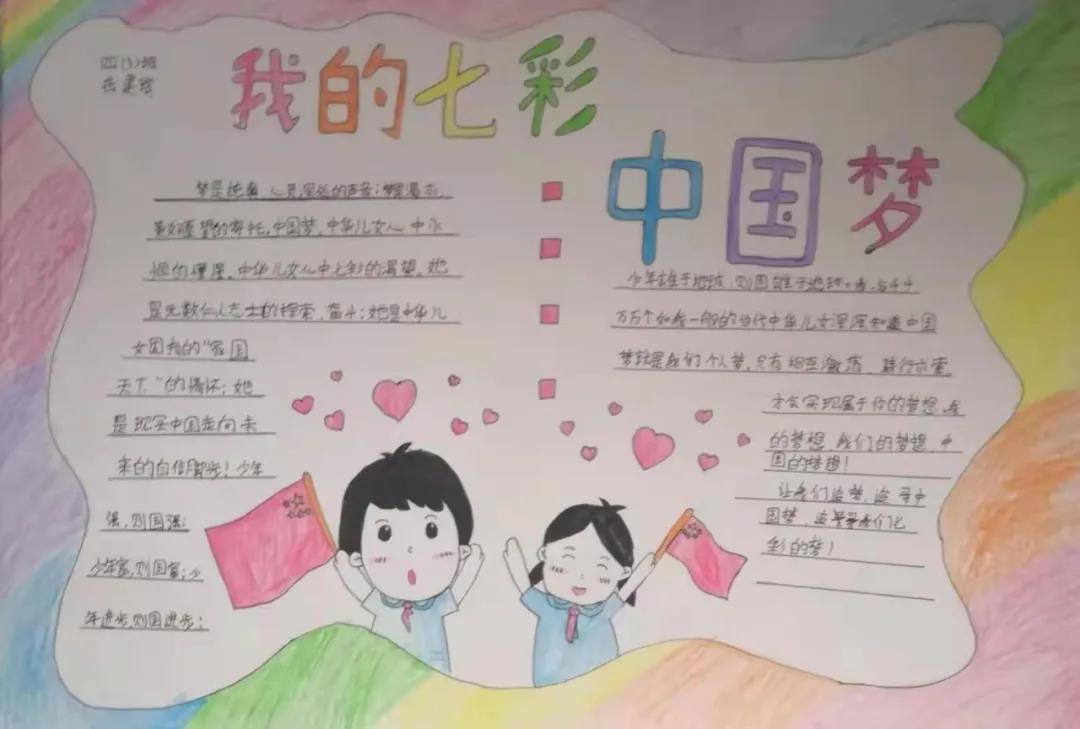 四(3)班
我的七彩
中国梦
梦是纯真,心灵深处的声音;梦是渴求,
美好愿望的寄托,中国梦,中华儿女心中永
恒的情深,中华儿女心中七彩的渴望,她
是无数仁人志士的探索,奋斗;她是中华儿
女固有的“家国
天下”的情怀;她
是现实中国走向未
来的自信脚步!少年
强,则国强;
少年富,则国富;少
年进步,则国进步;
少年雄于地球,则国雄于地球。千千
万万个如我一般的当代中华儿女深深知道中国
梦就是我们个人梦,只有相互激荡,践行求索
才会实现属于你的梦想,我
的梦想,我们的梦想,中
国的梦想!
让我们追梦,追寻中
国梦,我们七
彩的梦!